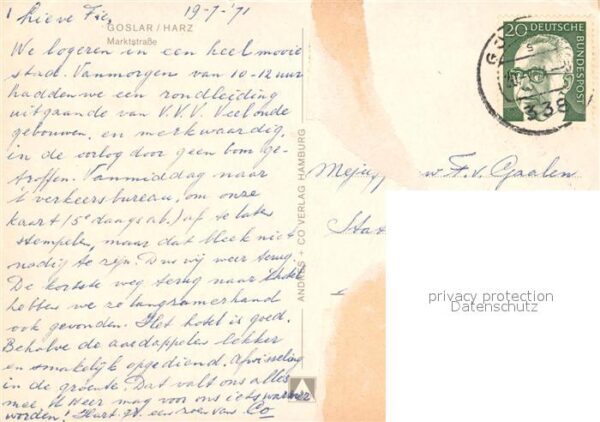 Lieve Fie, 19-7-'71
GOSLAR / HARZ
Marktstraße
We logeren in een heel mooie
stad. Vanmorgen van 10-12 uur
hadden we een rondleiding
uitgaande van V.V.V. Veel oude
gebouwen, en merkwaardig,
in de oorlog door geen bom ge-
troffen. Vanmiddag naar
't verkeersbureau, om onze
kaart (5e daagsab.) af te laten
stempelen, maar dat bleek niet
nodig te zijn. Dus wij weer terug.
De kortste weg terug naar
hebben we zo langzamerhand
ook gevonden. Het hotel is goed.
Behalve de aardappelen lekker
en smakelijk opgediend. Afwisseling
in de groente. Dat valt ons alles
mee. 't Weer mag voor ons iets warmer
worden! Hart. gr. een zoen van Co
ANDRES + CO VERLAG HAMBURG
20 DEUTSCHE
BUNDESPOST
338
Meju w F. v. Gaalen
Sta
privacy protection
Datenschutz